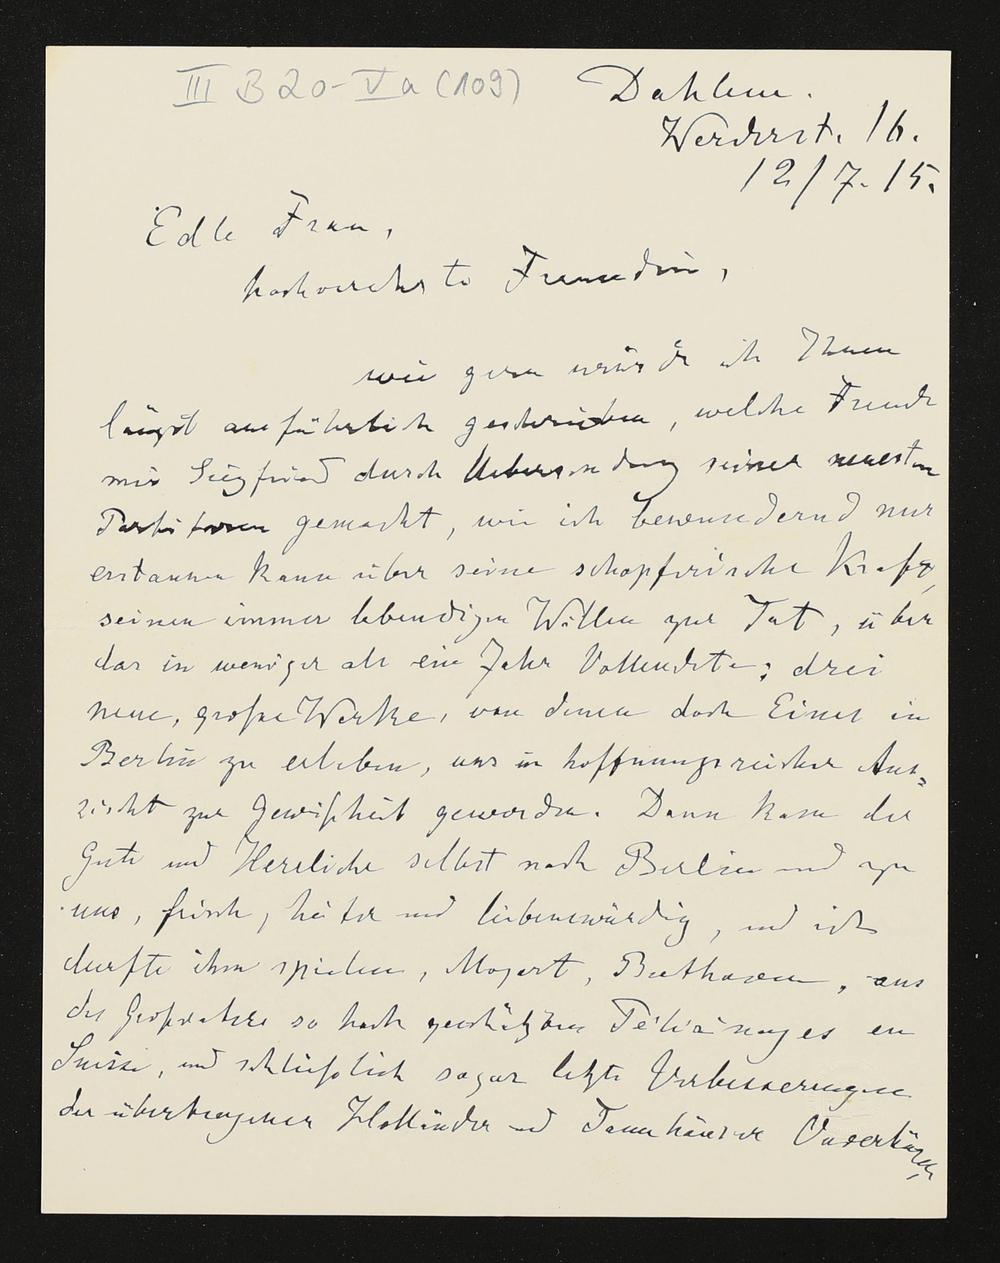 III B 20-Va (109)
Dahlem.
Werderst. 16.
12/7. 15.
Edle Frau,
hochverehrte Freundin,
wie gern würde ich Ihnen
längst ausführlich geschrieben, welche Freude
mir Siegfried durch Uebersendung seiner neuesten
Partituren gemacht, wie ich bewundernd nur
erstaunen kann über seine schöpferische Kraft,
seinen immer lebendigen Willen zur Tat, über
das in weniger als ein Jahr Vollendete; drei
neue, große Werke, von denen doch Eines in
Berlin zu erleben, uns in hoffnungsreicher Aus-
sicht zur Gewißheit geworden. Dann kam der
Gute und Herrliche selbst nach Berlin und zu
uns, frisch, heiter und liebenswürdig, und ich
durfte ihm spielen, Mozart, Beethoven, aus
des Großvaters so hoch geschätzten Pélérinages en
Suisse, und schließlich sogar letzte Verbesserungen
der übertragenen Holländer und Tannhäuser Ouvertüren,